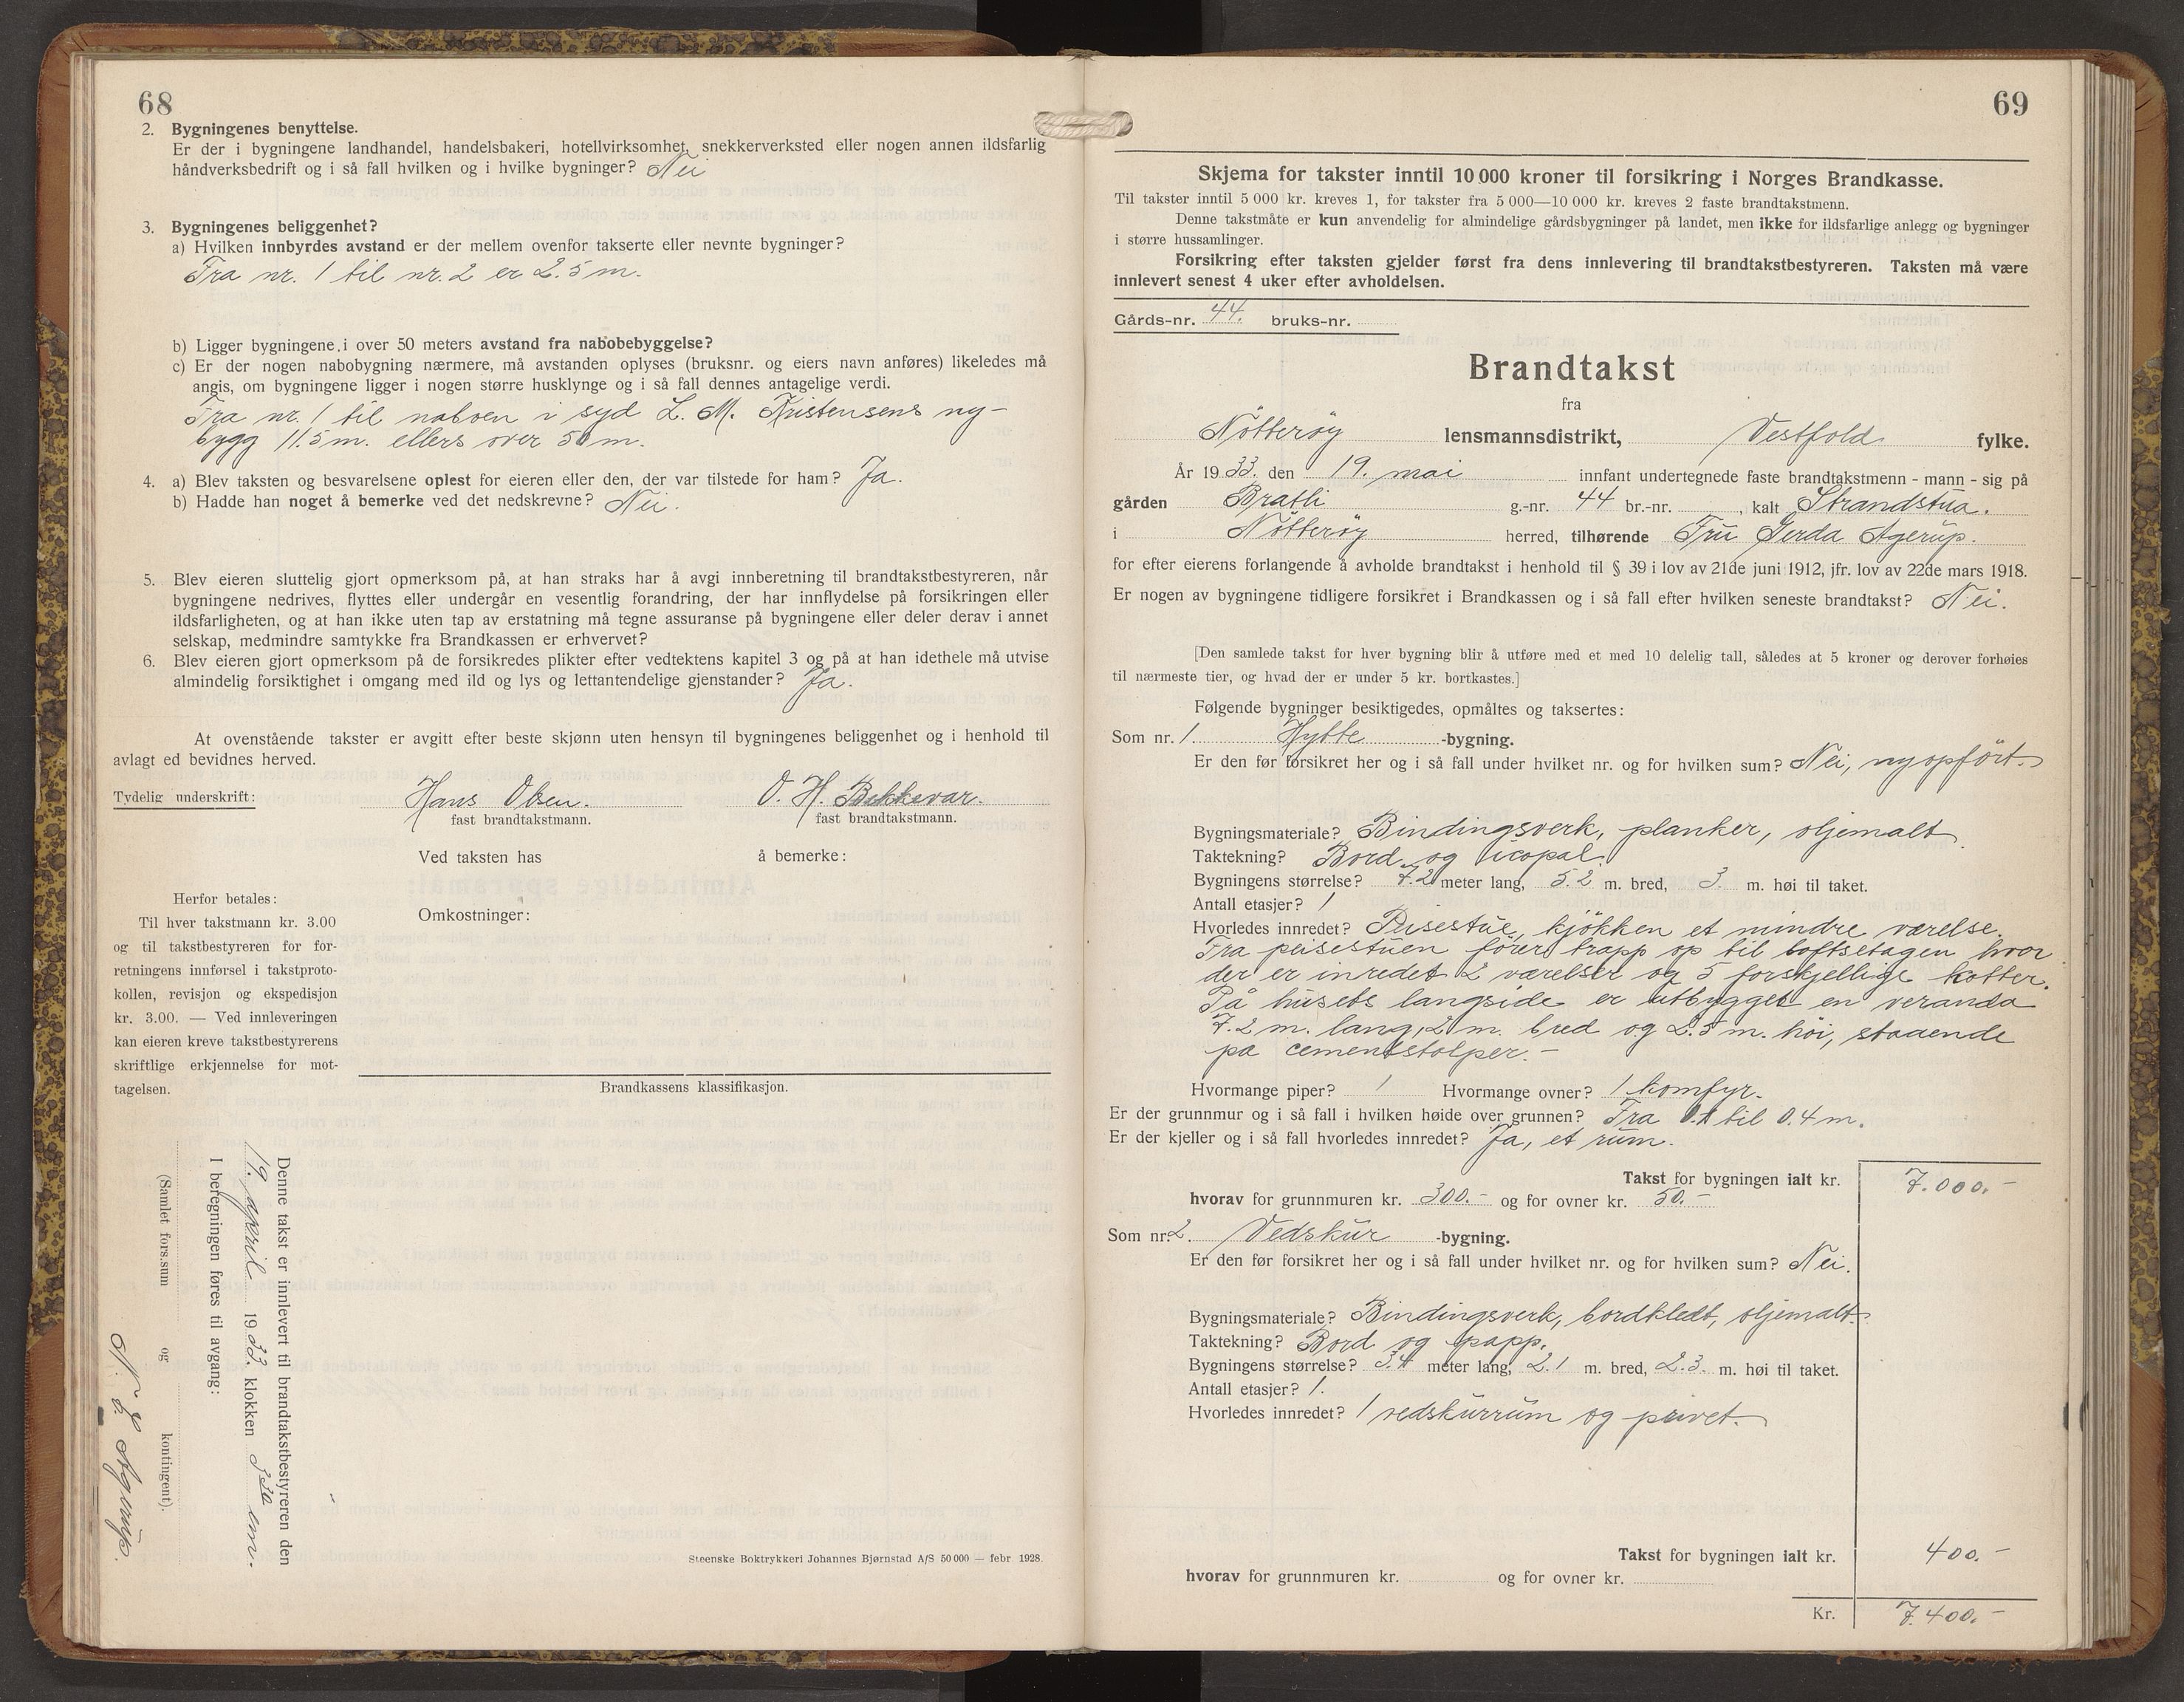 68
2. Bygningenes benyttelse.
Er der i bygningene landhandel, handelsbakeri, hotellvirksomhet, snekkerverksted eller nogen annen ildsfarlig
håndverksbedrift og i så fall hvilken og i hvilke bygninger? Nei
3. Bygningenes beliggenhet?
a) Hvilken innbyrdes avstand er der mellem ovenfor takserte eller nevnte bygninger?
Fra nr. 1 til nr. 2 er 2.5 m.
b) Ligger bygningene i over 50 meters avstand fra nabobebyggelse?
c) Er der nogen nabobygning nærmere, må avstanden oplyses (bruksnr. og eiers navn anføres) likeledes må
angis, om bygningene ligger i nogen større husklynge og i så fall dennes antagelige verdi.
Fra nr. 1 til naboen i syd L. M. Kristensens ny-
bygg 11.5 m. ellers over 50 m.
4. a) Blev taksten og besvarelsene oplest for eieren eller den, der var tilstede for ham? Ja.
b) Hadde han noget å bemerke ved det nedskrevne? Nei.
5. Blev eieren sluttelig gjort opmerksom på, at han straks har å avgi innberetning til brandtakstbestyreren, når
bygningene nedrives, flyttes eller undergår en vesentlig forandring, der har innflydelse på forsikringen eller
ildsfarligheten, og at han ikke uten tap av erstatning må tegne assuranse på bygningene eller deler derav i annet
selskap, medmindre samtykke fra Brandkassen er erhvervet?
6. Blev eieren gjort opmerksom på de forsikredes plikter efter vedtektens kapitel 3 og på at han idethele må utvise
almindelig forsiktighet i omgang med ild og lys og lettantendelige gjenstander? Ja.
At ovenstående takster er avgitt efter beste skjønn uten hensyn til bygningenes beliggenhet og i henhold til
avlagt ed bevidnes herved.
Tydelig underskrift: Hans Olsen. O. H. Bekkevar.
fast brandtakstmann. fast brandtakstmann.
Ved taksten has å bemerke:
Herfor betales:
Til hver takstmann kr. 3.00
og til takstbestyreren for for-
retningens innførsel i takstproto-
kollen, revisjon og ekspedisjon
kr. 3.00. — Ved innleveringen
kan eieren kreve takstbestyrerens
skriftlige erkjennelse for mot-
tagelsen.
Omkostninger:
Brandkassens klassifikasjon.
Denne takst er innlevert til brandtakstbestyreren den
19. april 1933. klokken 3 30 em.
I beregningen føres til avgang:
(Samlet fors.sum og kontingent).
Agerup.
Steenske Boktrykkeri Johannes Bjørnstad A/S 50 000 — febr. 1928.
69
Skjema for takster inntil 10 000 kroner til forsikring i Norges Brandkasse.
Til takster inntil 5 000 kr. kreves 1, for takster fra 5 000—10 000 kr. kreves 2 faste brandtakstmenn.
Denne takstmåte er kun anvendelig for almindelige gårdsbygninger på landet, men ikke for ildsfarlige anlegg og bygninger
i større hussamlinger.
Forsikring efter taksten gjelder først fra dens innlevering til brandtakstbestyreren. Taksten må være
innlevert senest 4 uker efter avholdelsen.
Gårds-nr. 44. bruks-nr.
Brandtakst
fra
Nötteröy lensmannsdistrikt, Vestfold fylke.
År 1933. den 19. mai innfant undertegnede faste brandtakstmenn - mann - sig på
gården Bratli g.-nr. 44 br.-nr. , kalt Strandstua.
i Nötteröy herred, tilhørende Fru Gerda Agerup.
for efter eierens forlangende å avholde brandtakst i henhold til § 39 i lov av 21de juni 1912, jfr. lov av 22de mars 1918.
Er nogen av bygningene tidligere forsikret i Brandkassen og i så fall efter hvilken seneste brandtakst? Nei.
[Den samlede takst for hver bygning blir å utføre med et med 10 delelig tall, således at 5 kroner og derover forhøies
til nærmeste tier, og hvad der er under 5 kr. bortkastes.]
Følgende bygninger besiktigedes, opmåltes og taksertes:
Som nr. 1. Hytte -bygning.
Er den før forsikret her og i så fall under hvilket nr. og for hvilken sum? Nei, nyopført.
Bygningsmateriale? Bindingsverk, planker, oljemalt.
Taktekning? Bord og icopal.
Bygningens størrelse? 7.2 meter lang, 5.2 m. bred, 3. m. høi til taket.
Antall etasjer? 1
Hvorledes innredet? Peisestue, kjökken et mindre værelse.
Fra peisestuen förer trapp op til loftsetagen hvor
der er inredet 2 værelser og 5 forskjellige kotter.
På husets langside er utbygget en veranda
7.2 m. lang, 2 m. bred og 2.5 m. höi, staaende
pa cementstolper.-
Hvormange piper? 1 Hvormange ovner? 1 komfyr.
Er der grunnmur og i så fall i hvilken høide over grunnen? Fra til 0.4 m.
Er der kjeller og i så fall hvorledes innredet? Ja, et rum.
Takst for bygningen ialt kr. 7.000.-
hvorav for grunnmuren kr. 300.- og for ovner kr. 50.-
Som nr 2. Vedskur -bygning.
Er den før forsikret her og i så fall under hvilket nr. og for hvilken sum? Nei.
Bygningsmateriale? Bindingsverk, bordkledt, oljemalt.
Taktekning? Bord og papp.
Bygningens størrelse? 3.4 meter lang, 2.1 m. bred, 2.3. m. høi til taket.
Antall etasjer? 1.
Hvorledes innredet? 1 vedskurrum og privet.
Takst for bygningen ialt kr. 400.-
hvorav for grunnmuren kr. og for ovner kr.
Kr. 7.400.-